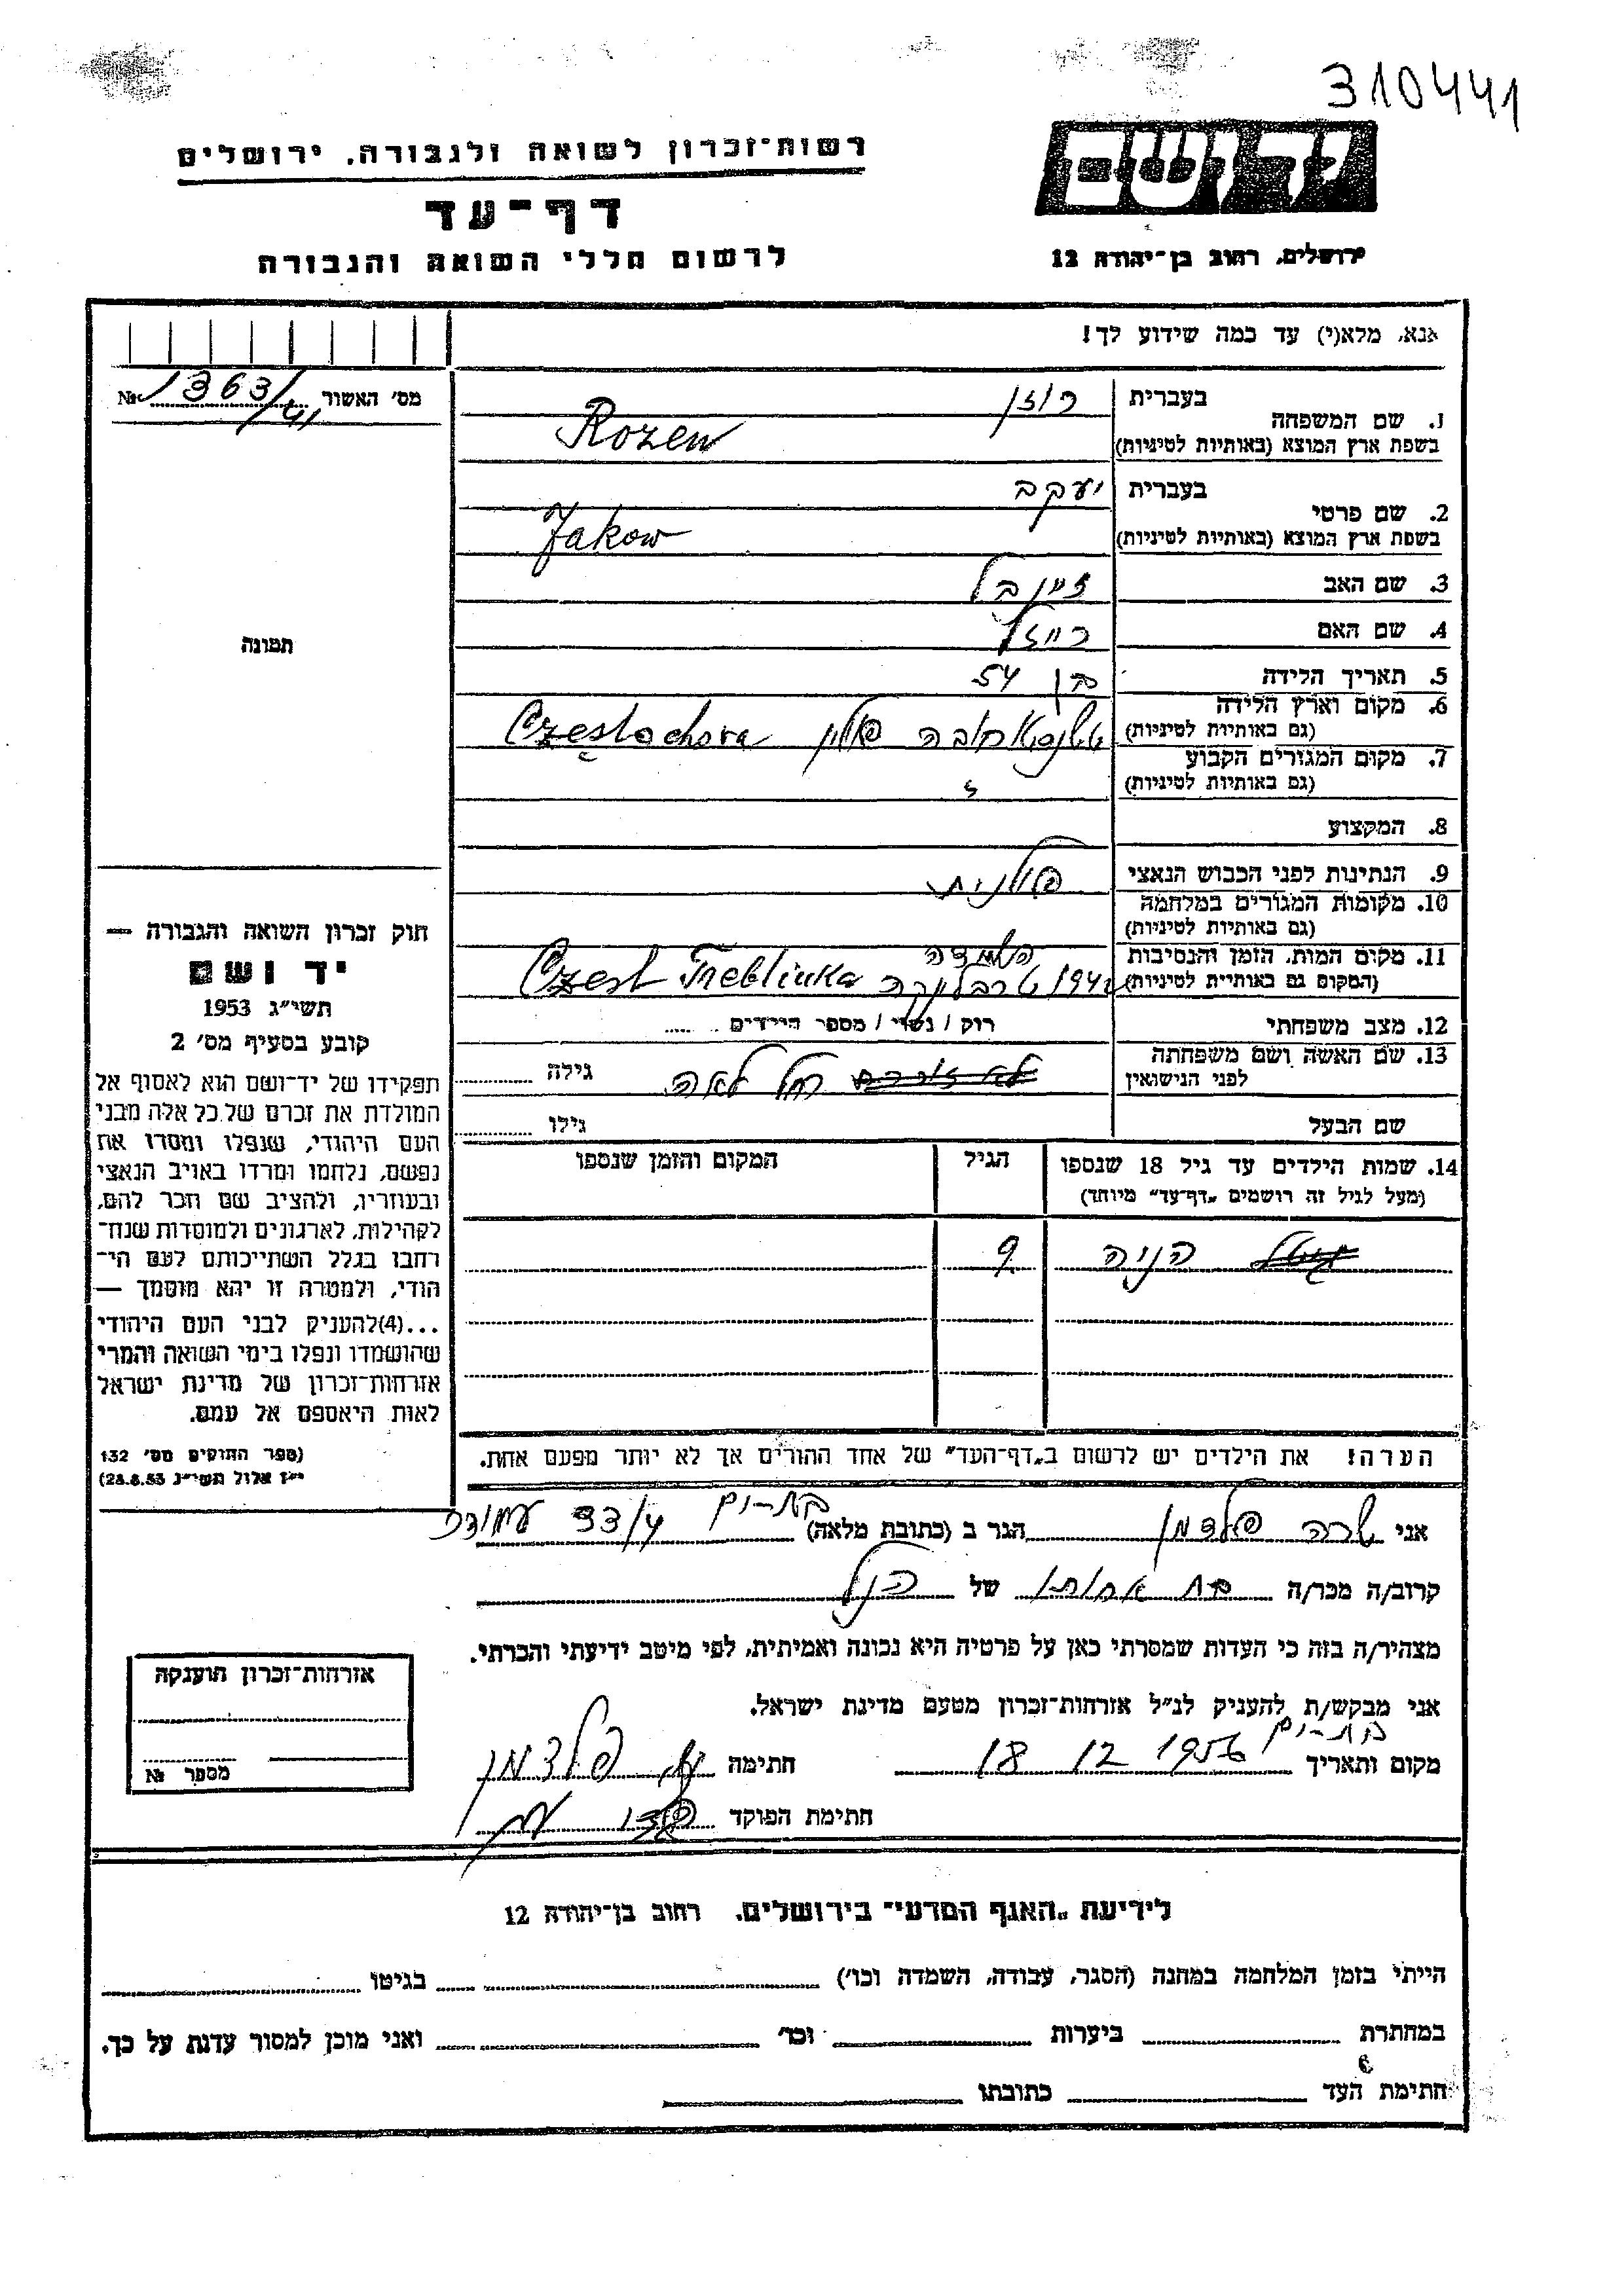 310441
יד ושם
רשות־זכרון לשואה ולגבורה. ירושלים
דף־עד
לרשום חללי השואה והגבורה
ירושלים, רחוב בן־יהודה 12
אנא, מלא(י) עד כמה שידוע לך!
מס׳ האשור 1363/41 №
1. שם המשפחה בעברית רוזן
בשפת ארץ המוצא (באותיות לטיניות) Rozen
2. שם פרטי בעברית יעקב
בשפת ארץ המוצא (באותיות לטיניות) Jakow
3. שם האב זיינבל
4. שם האם רייזל
5. תאריך הלידה בן 54
6. מקום וארץ הלידה
(גם באותיות לטיניות) פולין Częstochova
7. מקום המגורים הקבוע
(גם באותיות לטיניות)
8. המקצוע
9. הנתינות לפני הכבוש הנאצי פולנית
10. מקומות המגורים במלחמה
(גם באותיות לטיניות)
11. מקום המות, הזמן והנסיבות השמדה
(המקום גם באותיות לטיניות) 1942 טרבלינקה Czest Treblinka
12. מצב משפחתי רוק / נשוי / מספר הילדים
13. שם האשה ושם משפחתה
לפני הנישואין רחל לאה גילה
שם הבעל גילו
14. שמות הילדים עד גיל 18 שנספו הגיל המקום והזמן שנספו
(מעל לגיל זה רושמים „דף־עד” מיוחד)
הניה 9
הערה! את הילדים יש לרשום ב„דף־העד” של אחד ההורים אך לא יותר מפעם אחת.
תמונה
חוק זכרון השואה והגבורה —
יד ושם
תשי״ג 1953
קובע בסעיף מס׳ 2
תפקידו של יד־ושם הוא לאסוף אל
המולדת את זכרם של כל אלה מבני
העם היהודי, שנפלו ומסרו את
נפשם, נלחמו ומרדו באויב הנאצי
ובעוזריו, ולהציב שם וזכר להם,
לקהילות, לארגונים ולמוסדות שנח־
רבו בגלל השתייכותם לעם הי־
הודי, ולמטרה זו יהא מוסמך —
...(4)להעניק לבני העם היהודי
שהושמדו ונפלו בימי השואה והמרי
אזרחות־זכרון של מדינת ישראל
לאות היאספם אל עמם.
(ספר החוקים מס׳ 132
י״ז אלול תשי״ג 28.8.53)
אני שרה פלדמן הגר ב (כתובת מלאה) בת־ים 33/4 עמידר
קרוב/ה מכר/ה בת אחותו של הנ״ל
מצהיר/ה בזה כי העדות שמסרתי כאן על פרטיה היא נכונה ואמיתית, לפי מיטב ידיעתי והכרתי.
אני מבקש/ת להעניק לנ״ל אזרחות־זכרון מטעם מדינת ישראל.
מקום ותאריך בת־ים 18 12 1956 חתימה ש. פלדמן
חתימת הפוקד
אזרחות־זכרון הוענקה
מספר №
לידיעת „האגף המדעי” בירושלים. רחוב בן־יהודה 12
הייתי בזמן המלחמה במחנה (הסגר, עבודה, השמדה וכו׳) בגיטו
במחתרת ביערות וכו׳ ואני מוכן למסור עדות על כך.
חתימת העד כתובתו